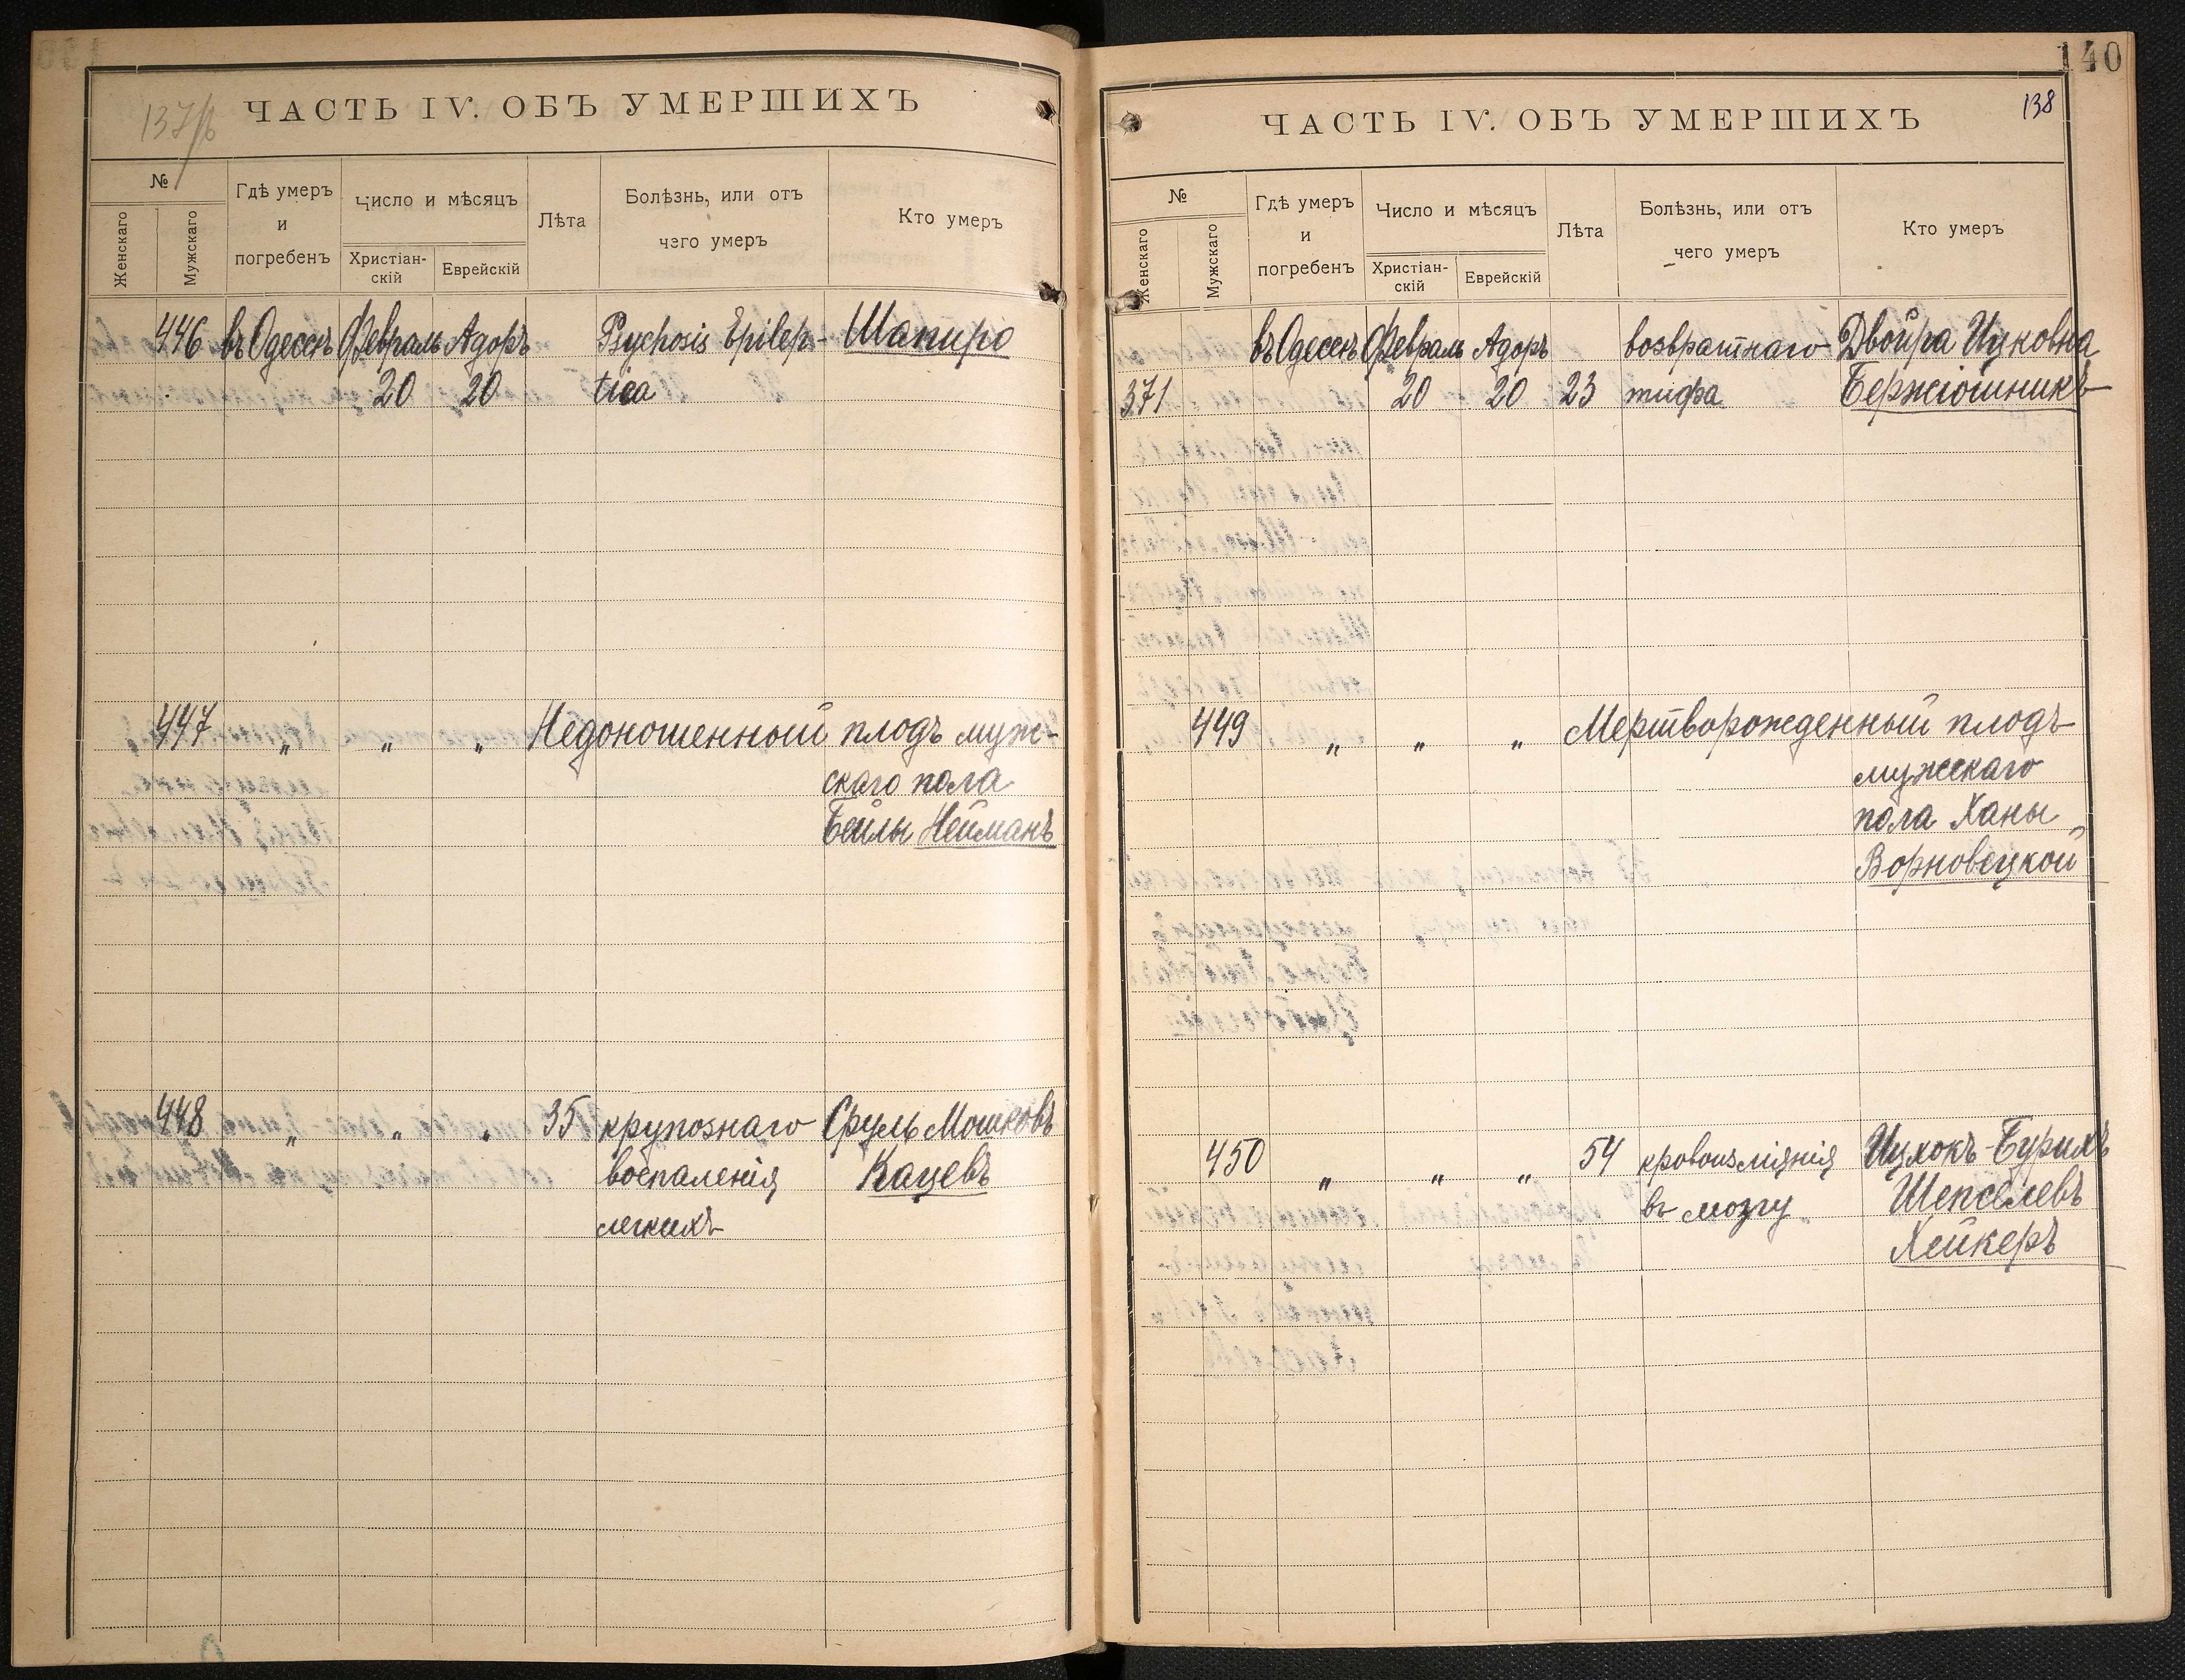 137/б
ЧАСТЬ IV. ОБЪ УМЕРШИХЪ
№
Женскаго
Мужскаго
Гдѣ умеръ
и
погребенъ
Число и мѣсяцъ
Христіан-
скій
Еврейскій
Лѣта
Болѣзнь, или отъ
чего умеръ
Кто умеръ
446 въ Одессѣ Февраль Адоръ Psychosis Epilep- Шапиро
20 20 tica
447 „ „ „ Недоношенный плодъ муж-
скаго пола
Бейлы Нейманъ
448 „ „ „ 35 крупознаго Сруль Мошковъ
воспаленія Кацевъ
легкихъ
140
138
ЧАСТЬ IV. ОБЪ УМЕРШИХЪ
№
Женскаго
Мужскаго
Гдѣ умеръ
и
погребенъ
Число и мѣсяцъ
Христіан-
скій
Еврейскій
Лѣта
Болѣзнь, или отъ
чего умеръ
Кто умеръ
въ Одессѣ Февраль Адоръ возвратнаго Двойра Ицковна
371 20 20 23 тифа
449 „ „ „ Мертворожденный плодъ
мужскаго
пола Ханы
Ворновецкой
450 „ „ „ 54 кровоизліянія Ицхокъ-Бурихъ
въ мозгу Шепселевъ
Хейкеръ